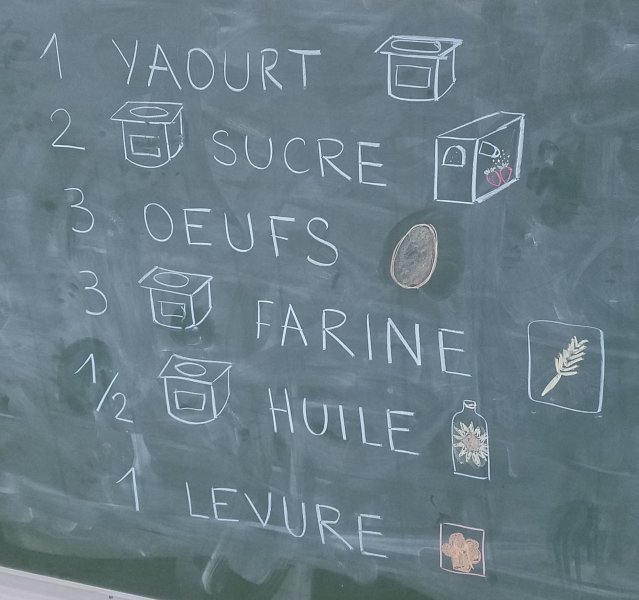 1 YAOURT
2 SUCRE
3 OEUFS
3 FARINE
1/2 HUILE
1 LEVURE